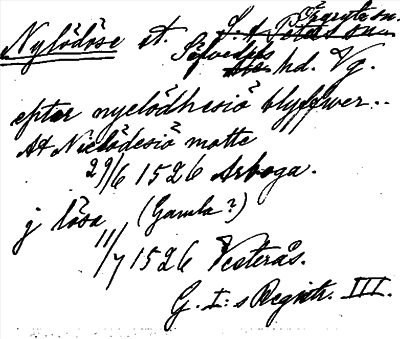 Nylödöse st. Örgryte sn.
Sävedals hd. Vg.
epter nyelödhesiö blyffwer..
At Nielödesiö motte
29/6 1526 Arboga.
j lösa (Gamla?)
11/7 1526 Vesterås.
G. I:s Registr. III.